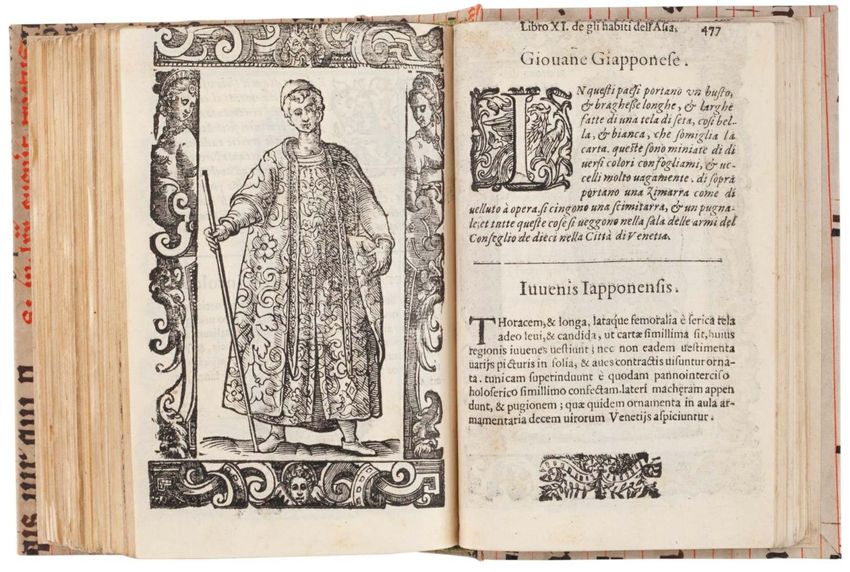 Libro XI. de gli habiti dell'Asia. 477
Giouane Giapponese.
IN questi paesi portano vn busto,
& braghesse longhe, & larghe
fatte di una tela di seta, cosi bel-
la, & bianca, che somiglia la
carta. queste sono miniate di di
uersi colori con fogliami, & uc-
celli molto vagamente. di sopra
portano una Zimarra come di
uelluto à opera. si cingono una scimitarra, & un pugna-
le; et tutte queste cose si ueggono nella sala delle armi del
Conseglio de dieci nella Città di Venetia.
Iuuenis Iapponensis.
THoracem, & longa, lataque femoralia è serica tela
adeo leui, & candida, ut cartæ simillima sit, huius
regionis iuuenes uestiunt; nec non eadem uestimenta
uarijs picturis in folia, & aues contractis uisuntur orna-
ta. tunicam superinduunt è quodam panno interciso
holoserico simillimo confectam. lateri macheram appen
dunt, & pugionem; quæ quidem ornamenta in aula ar-
mamentaria decem uirorum Venetijs aspiciuntur.